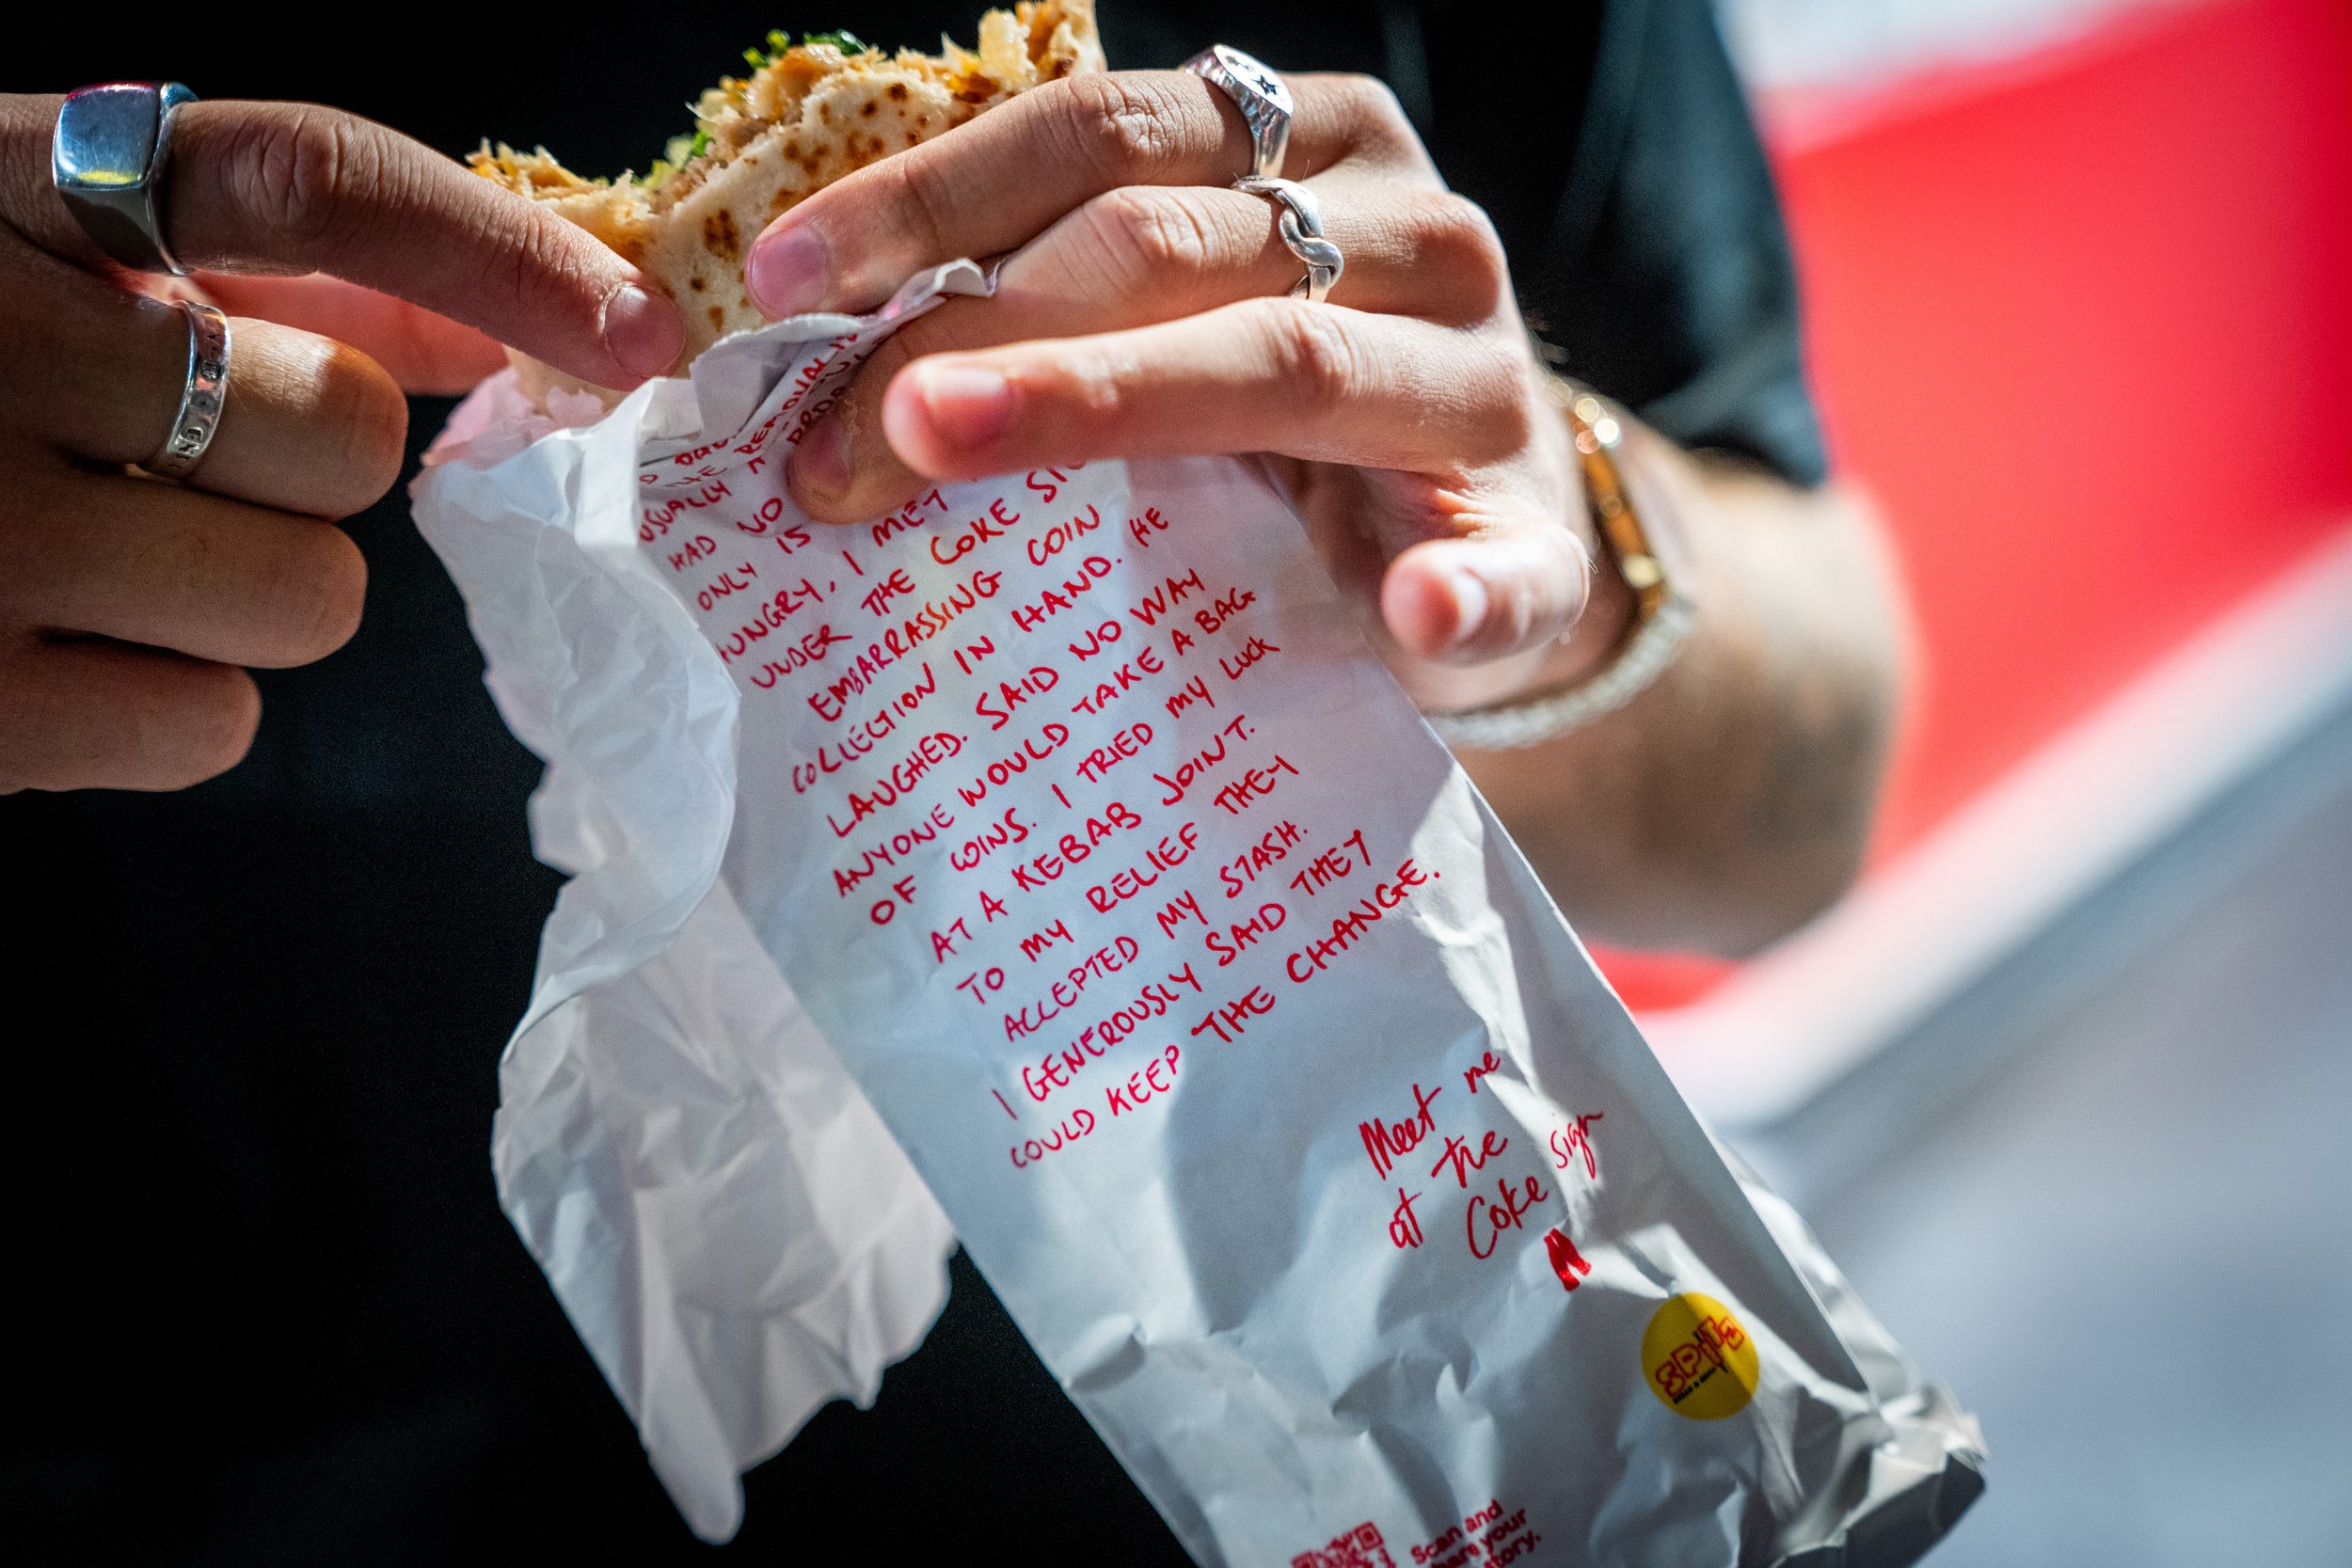 USUALLY
HAD NO
ONLY IS
HUNGRY, I MET
UNDER THE COKE
EMBARRASSING COIN
COLLECTION IN HAND. HE
LAUGHED. SAID NO WAY
ANYONE WOULD TAKE A BAG
OF COINS. I TRIED MY LUCK
AT A KEBAB JOINT.
TO MY RELIEF THEY
ACCEPTED MY STASH.
I GENEROUSLY SAID THEY
COULD KEEP THE CHANGE.
Meet me
at the
Coke sign
Scan and
your
story.